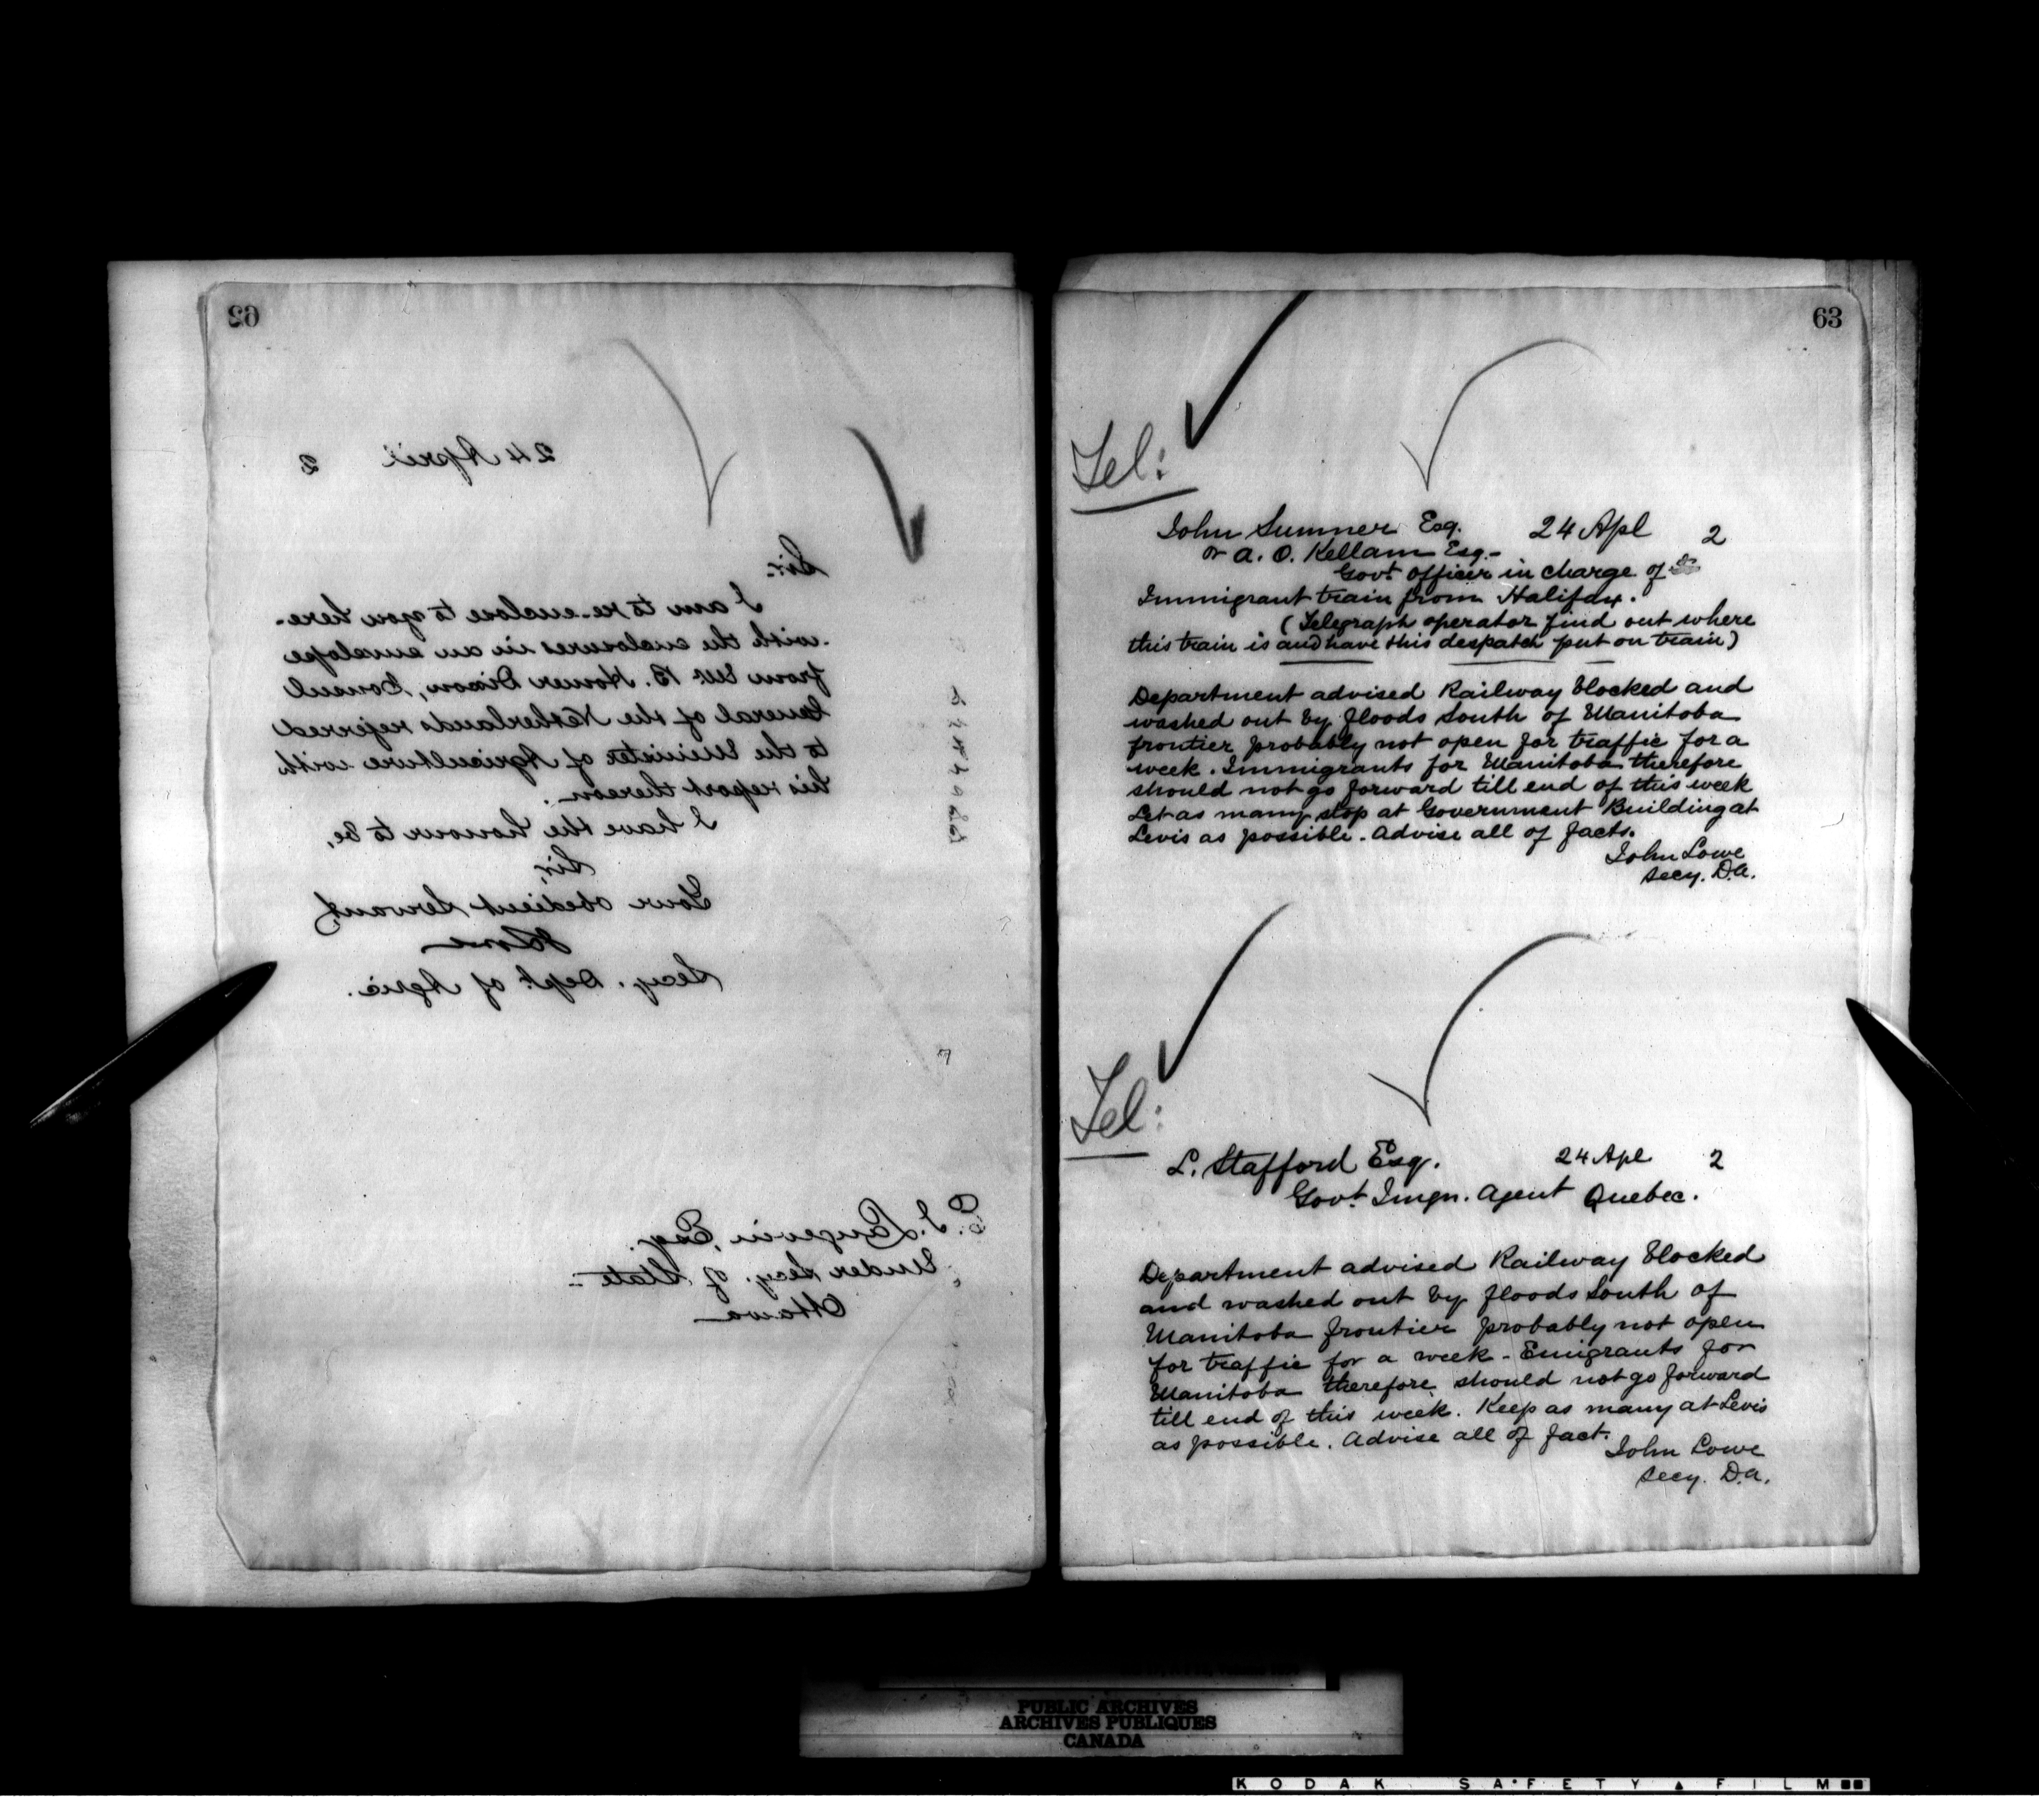 62
24 April 2
Sir.
I am to re-enclose to you here-
-with the enclosures in an envelope
from Mr. B. Homer Dixon, Consul
General of the Netherlands referred
to the Minister of Agriculture with
his report thereon.
I have the honour to be,
Sir,
Your obedient Servant,
JLowe
Secy. Dept. of Agric.
E. J. Langevin, Esq.
Under Secy. of State
Ottawa
63
Tel:
John Sumner Esq. 24 Apl 2
or A. O. Kellam Esq.
Govt Officer in charge of
Immigrant train from Halifax.
(Telegraph operator find out where
this train is and have this despatch put on train)
Department advised Railway blocked and
washed out by floods South of Manitoba
frontier probably not open for traffic for a
week. Immigrants for Manitoba therefore
should not go forward till end of this week
Let as many stop at Government Building at
Levis as possible. Advise all of facts.
John Lowe
Secy. D.A.
Tel:
L. Stafford Esq. 24 Apl 2
Govt. Imgn. Agent Quebec.
Department advised Railway blocked
and washed out by floods South of
Manitoba frontier probably not open
for traffic for a week - Emigrants for
Manitoba therefore should not go forward
till end of this week. Keep as many at Levis
as possible. Advise all of fact.
John Lowe
Secy. D.A.
PUBLIC ARCHIVES
ARCHIVES PUBLIQUES
CANADA
KODAK SAFETY FILM